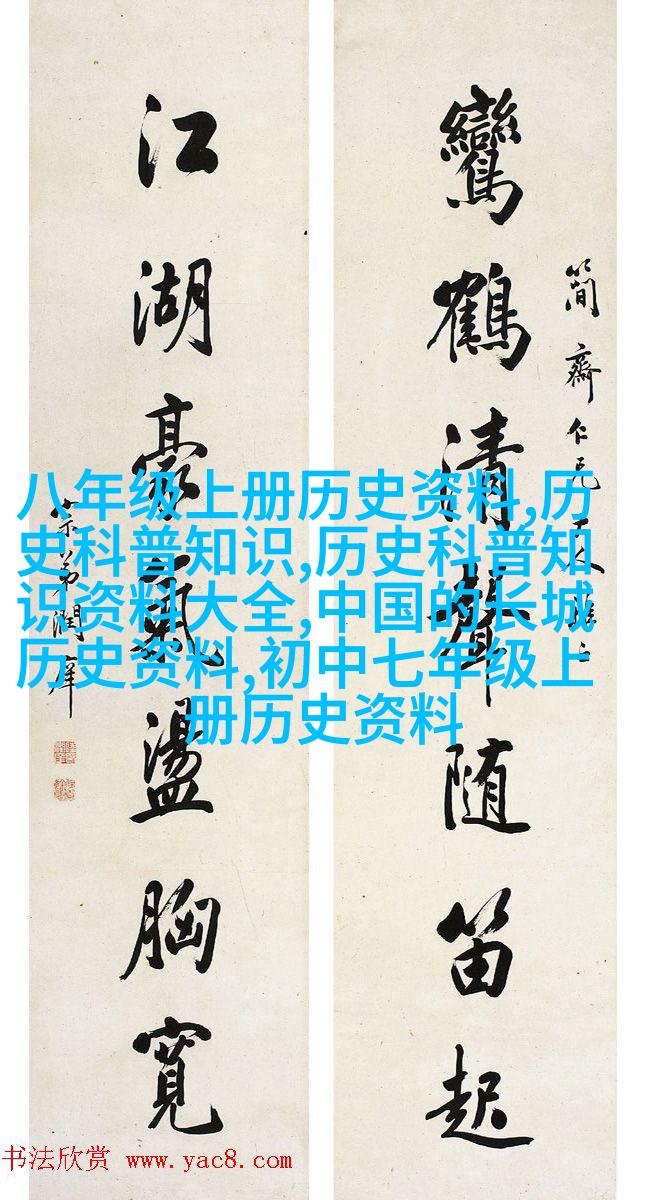 簡齋仁兄大人雅正
鸞鶴清聲随笛起
江湖豪氣盪胸寬
宗弟潤庠
八年级上册历史资料,历
史科普知识,历史科普知
识资料大全,中国的长城
历史资料,初中七年级上
册历史资料
书法欣赏 www.yac8.com